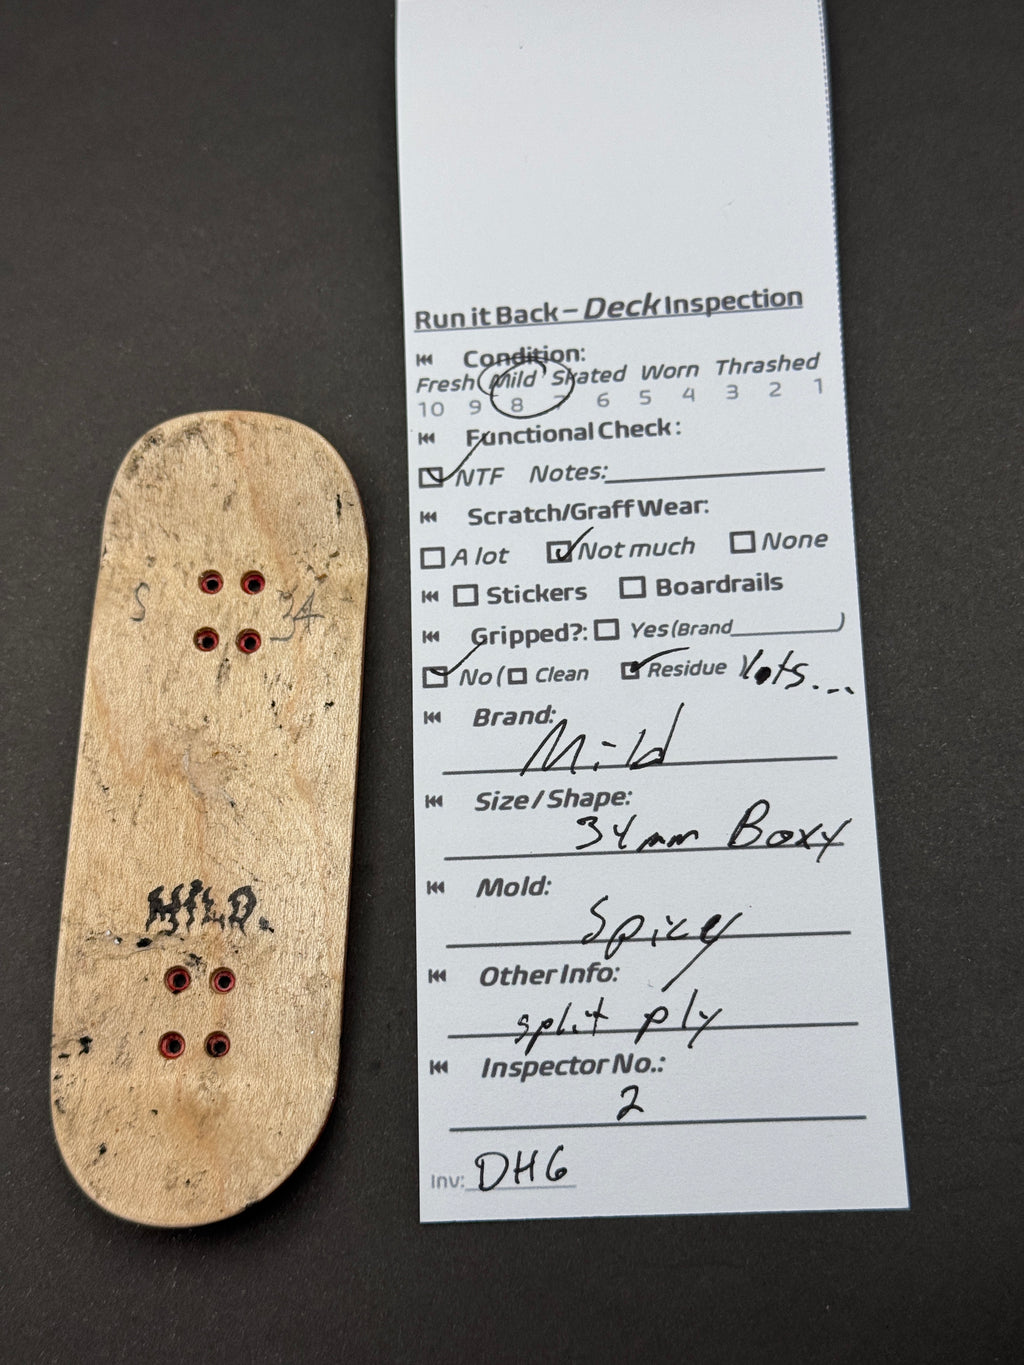 Run it Back – Deck Inspection
Condition:
Fresh Mild Skated Worn Thrashed
10 9 8 7 6 5 4 3 2 1
Functional Check:
NTF Notes:
Scratch/Graff Wear:
A lot Not much None
Stickers Boardrails
Gripped?: Yes (Brand )
No ( Clean Residue lots...
Brand:
Mild
Size / Shape:
34mm Boxy
Mold:
Spicy
Other Info:
split ply
Inspector No.:
2
Inv: DH6
S 34
MILD.